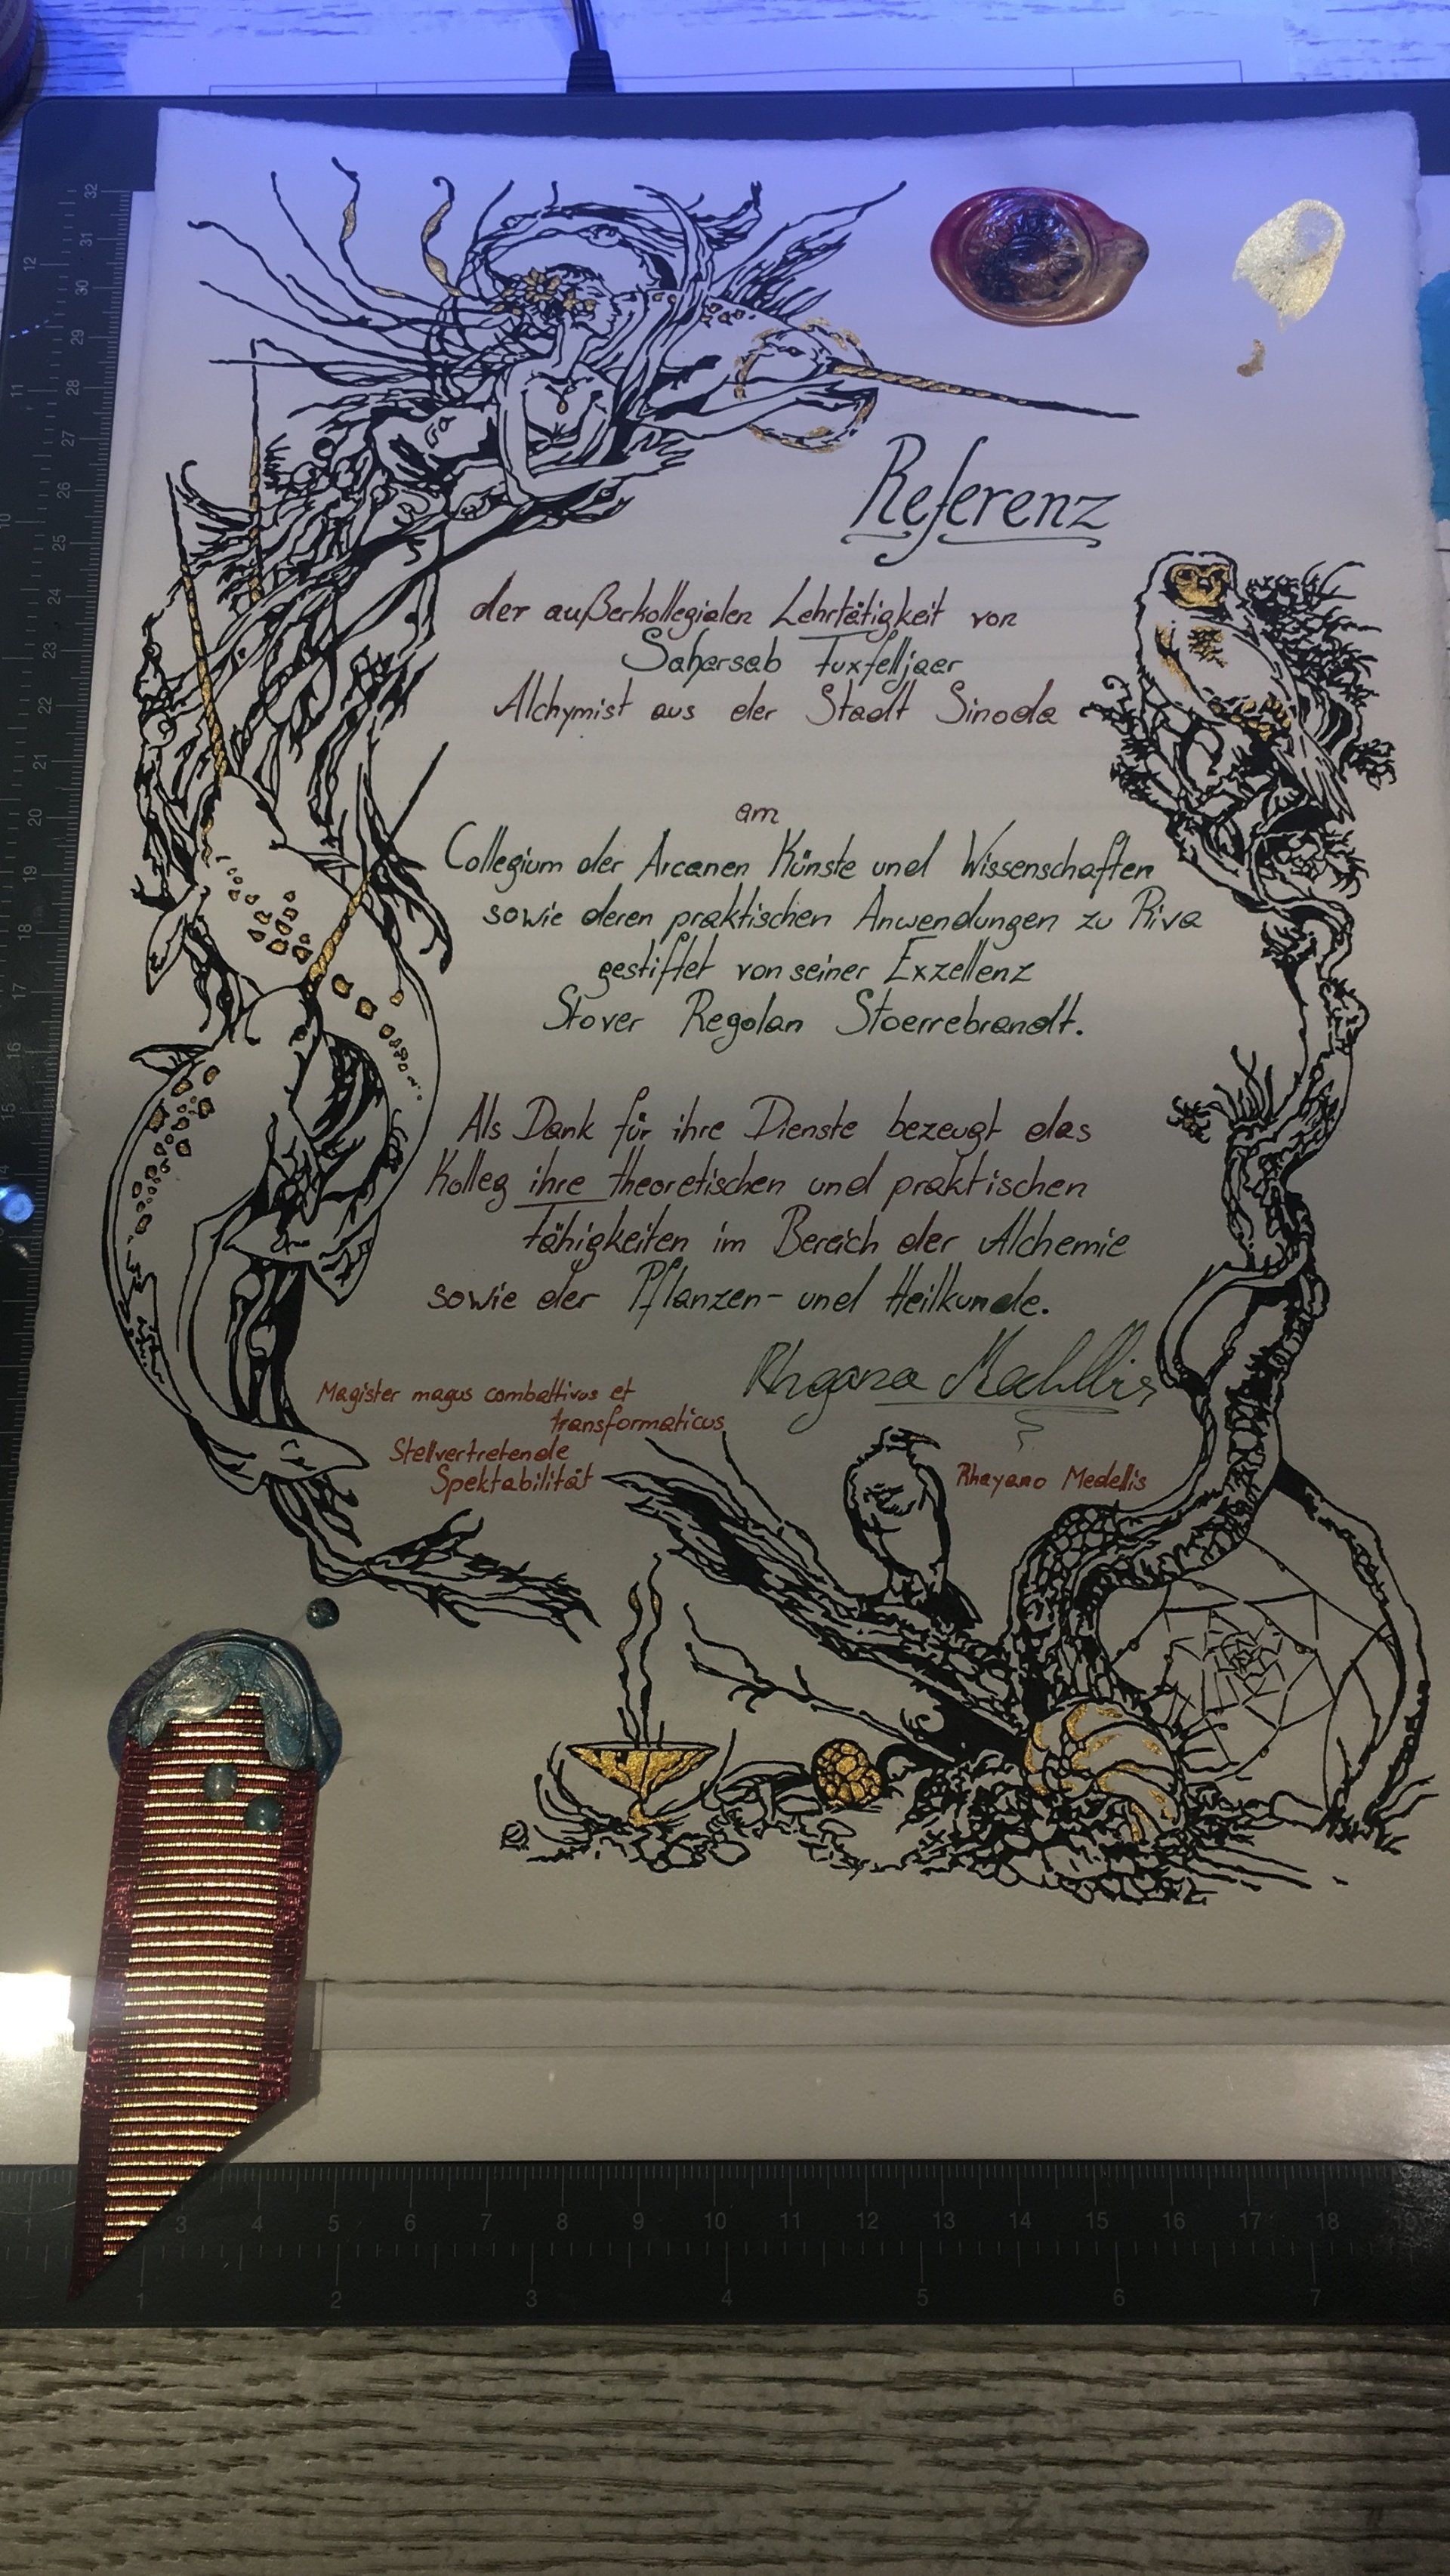 Referenz
der außerkollegialen Lehrtätigkeit von
Sahersab Fuxfelljaer
Alchymist aus der Stadt Sinoda
am
Collegium der Arcanen Künste und Wissenschaften
sowie deren praktischen Anwendungen zu Riva
gestiftet von seiner Exzellenz
Stover Regolan Stoerrebrandt.
Als Dank für ihre Dienste bezeugt das
Kolleg ihre theoretischen und praktischen
Fähigkeiten im Bereich der Alchemie
sowie der Pflanzen- und Heilkunde.
Magister magus combattivus et
transformaticus
Stellvertretende
Spektabilität
Rhayano Medellis